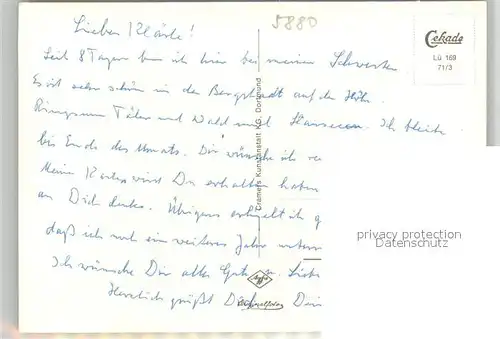 5880
Cekade
LÜ 169
71/3
Lieber Kläre!
Seit 8 Tagen bin ich hier bei meinen Schwester.
Es ist sehr schön in der Bergstadt auf der Höhe.
Ringsum Täler und Wald und Ich bleibe
bis Ende des Monats. Dir wünsche ich
Meine Karten wirst Du erhalten haben
an Dich denke. Übrigens ich
daß ich noch ein weiteres Jahr
Ich wünsche Dir alles Gute u. Liebe
Herzlich grüßt Dich Dein
Cramers Kunstanstalt KG, Dortmund
Agfa
privacy protection
Datenschutz